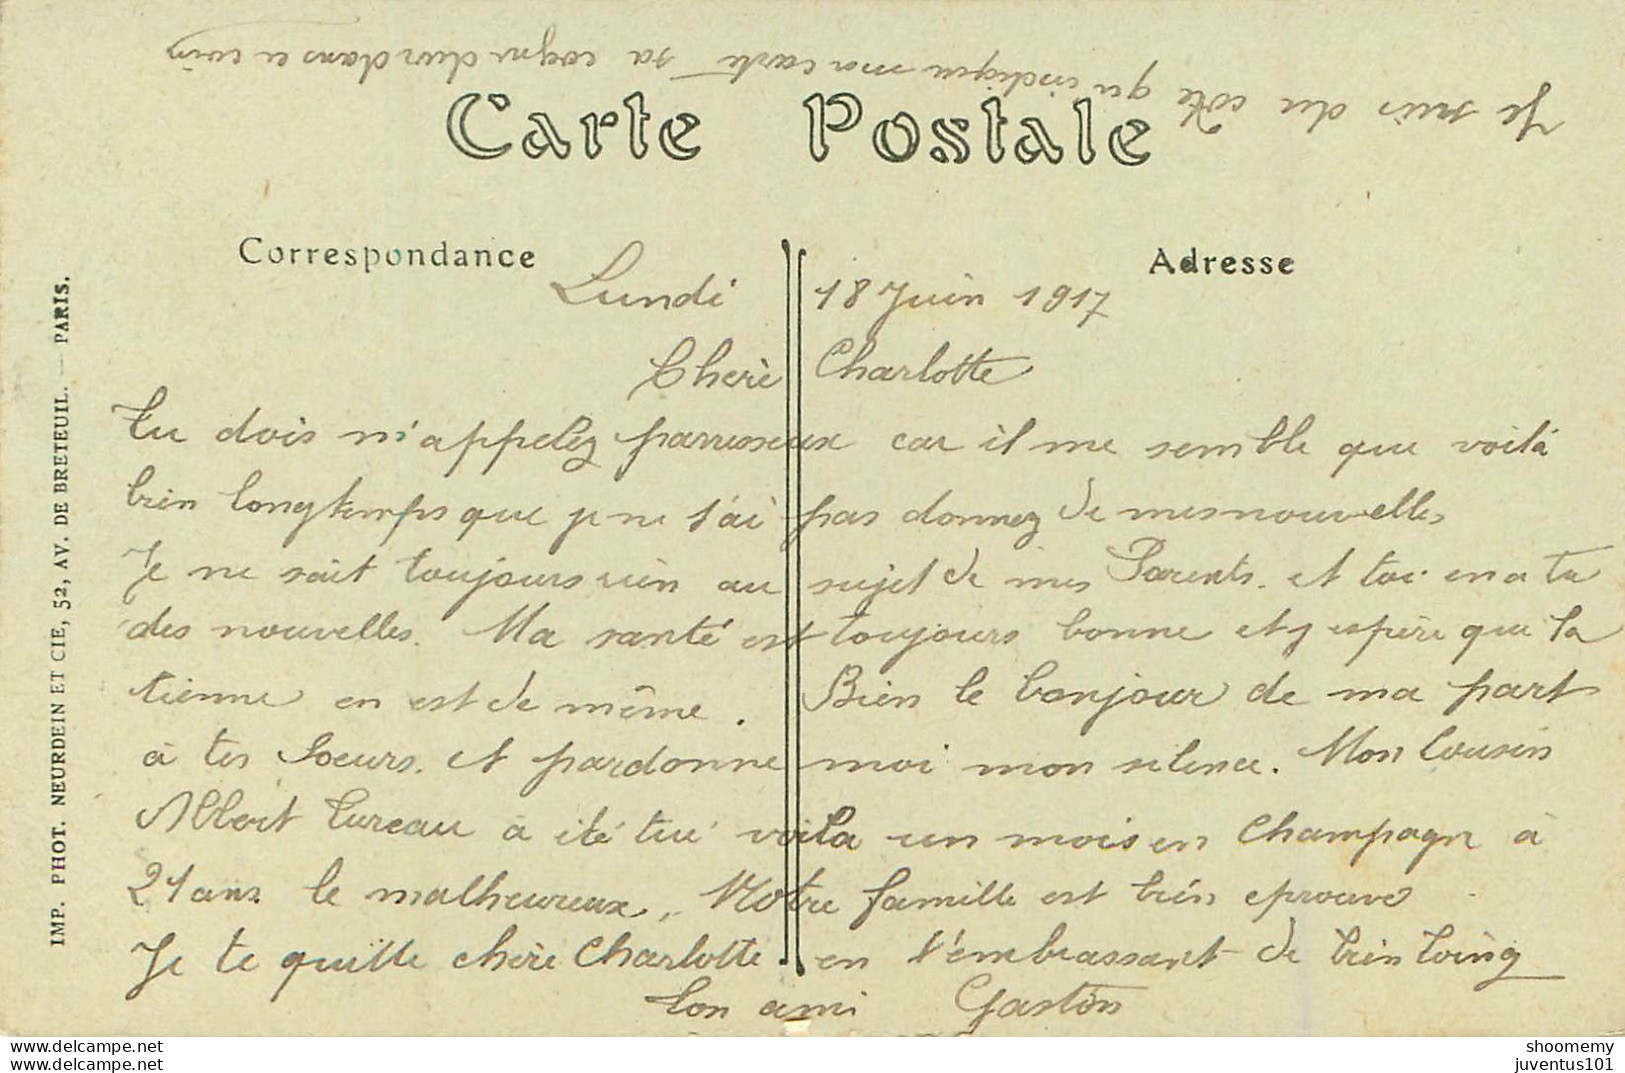 Je suis du côté qu indique ma carte sa cogne dur dans ce coin
Carte Postale
Correspondance
Adresse
Lundi 18 Juin 1917
Cherè Charlotte
Tu dois m'appelez parresseux car il me semble que voilà
bien longtemps que je ne t'ai pas donnez de mes nouvelles
Je ne sait toujours rien au sujet de mes Parents. et toi en a tu
des nouvelles. Ma santé est toujours bonne et j espère que la
tienne en est de même. Bien le bonjour de ma part
à tes Soeurs. et pardonne moi mon silence. Mon Cousin
Albert Cureau a été tué voila un mois en Champagne à
21 ans le malheureux. Notre famille est bien eprouvé
Je te quitte chère Charlotte en t'embrassant de bien loing
Ton ami Gaston
IMP. PHOT. NEURDEIN ET CIE, 52, AV. DE BRETEUIL. — PARIS.
www.delcampe.net
www.delcampe.net
shoomemy
juventus101